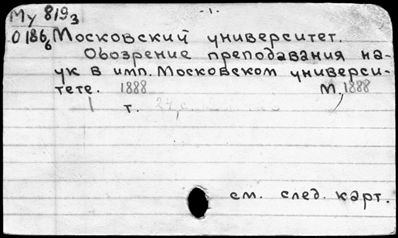 Му 819₃ -1.
О 186₆ Московский университет.
Обозрение преподавания на-
ук в имп. Московском универси-
тете. 1888 М, 1888
т.
см. след. карт.